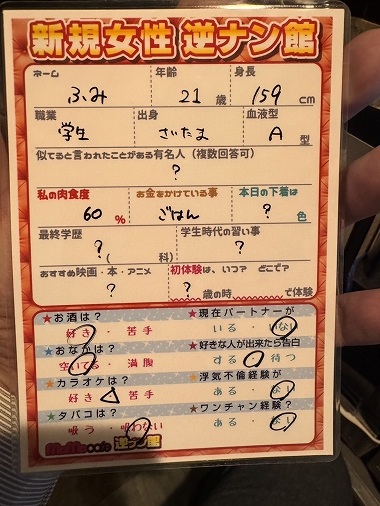 新規女性 逆ナン館
ネーム 年齢 身長
ふみ 21歳 159cm
職業 出身 血液型
学生 さいたま A型
似てると言われたことがある有名人(複数回答可)
?
私の肉食度 お金をかけている事 本日の下着は
60% ごはん ?色
最終学歴 学生時代の習い事
?(科) ?
おすすめ映画・本・アニメ 初体験は、いつ? どこで?
? ?歳の時?で体験
★お酒は? ★現在パートナーが
好き・苦手 いる・いない
★おなかは? ★好きな人が出来たら告白
空いてる・満腹 する・待つ
★カラオケは? ★浮気不倫経験が
好き・苦手 ある・ない
★タバコは? ★ワンチャン経験?
吸う・吸わない ある・ない
逆ナン館